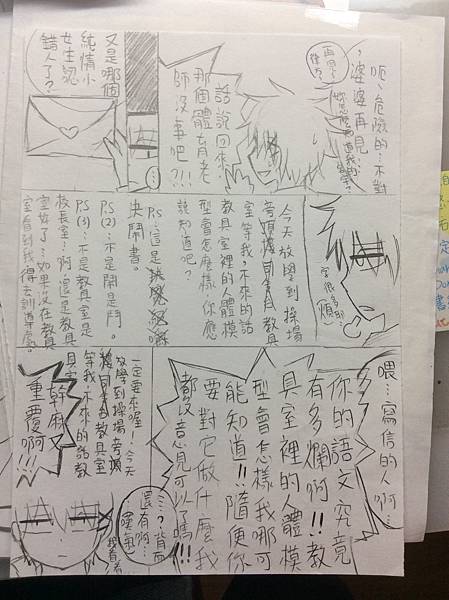 呃、危險的…不對
，婆婆再見
再見~
話說回來，
那個體育老
師沒事吧？!!
…
又是哪個
純情小
女生認
錯人了？
今天放學到操場
教具
室等我，不來的話
教具室裡的人體模
型會怎麼樣，你應
該知道吧？
P.S.這是
決鬥書。
P.S(2)…不是開是鬥。
P.S(3)…不是教具室是
校長室…啊，還是教具
室好了…如果沒在教具
室看到我，得去訓導處。
字很多耶…
(煩)
喂…寫信的人啊…
你的語文究竟
有多爛啊!!教
具室裡的人體模
型會怎樣我哪可
能知道!!隨便你
要對它做什麼我
都沒意見可以了嗎!!!
一定要來喔！今天
放學到操場旁
教具室
等我，不來的話教
具室
幹麻又
重覆啊!!!
…？背面
還有啊…